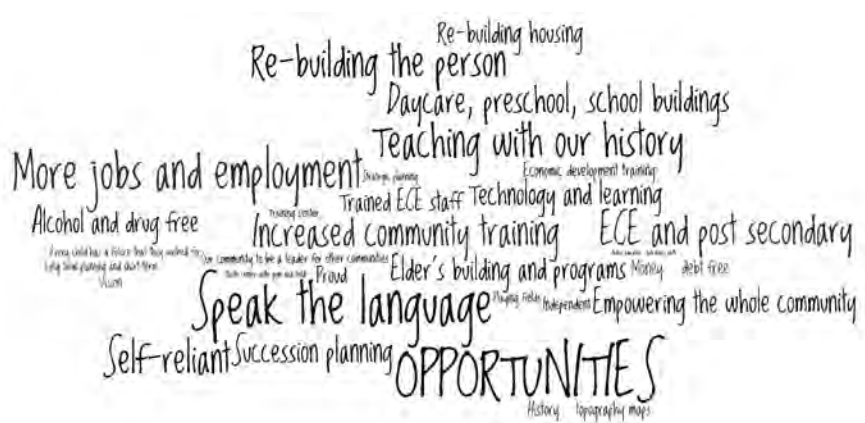 Re-building housing
Re-building the person
Daycare, preschool, school buildings
Teaching with our history
More jobs and employment
Strategic planning
Economic development training
Trained ECE staff
Technology and learning
Training center
Alcohol and drug free
Increased community training
ECE and post secondary
Every child has a future that they worked for
Our community to be a leader for other communities
Elder's building and programs
Money
debt free
Long term planning and short term
Proud
Vision
Speak the language
Playing Fields
Independent
Empowering the whole community
Self-reliant
Succession planning
OPPORTUNITIES
History
topography maps